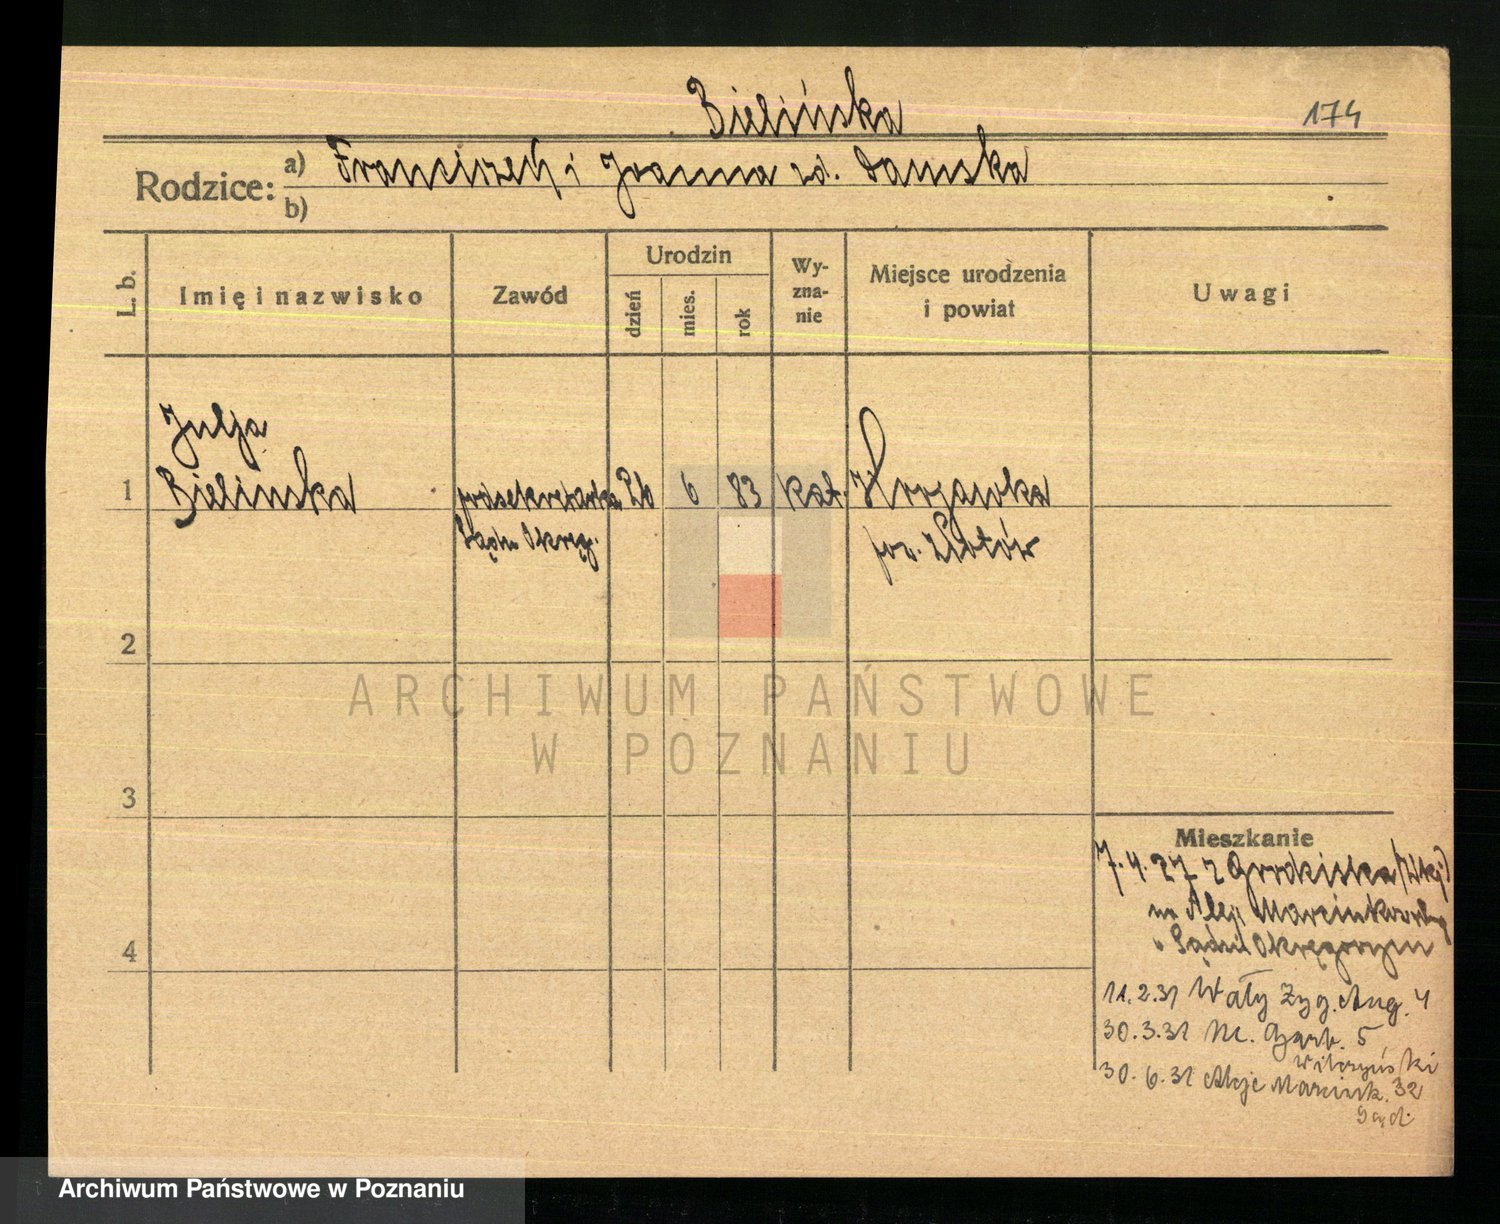 Bielińska
174
Rodzice: a) Franciszek i Joanna zd. Damska
b)
L. b.
Imię i nazwisko
Zawód
Urodzin
dzień
mies.
rok
Wy-
zna-
nie
Miejsce urodzenia
i powiat
Uwagi
Julja
1 Bielinska podsekretarka 26 6 83 kat.
Sądu Okręg.
pow. Złotów
2
3
4
ARCHIWUM PAŃSTWOWE
W POZNANIU
Mieszkanie
7.4.27 z Grodziska (Wlkp)
na Alej. Marcinkowskiego
w Sądzie Okręgowym
11.2.31 Wały Zyg. Aug. 4
30.3.31 M. Garb. 5
Wilczyński
30.6.31 Aleje Marcink. 32
Sąd.
Archiwum Państwowe w Poznaniu